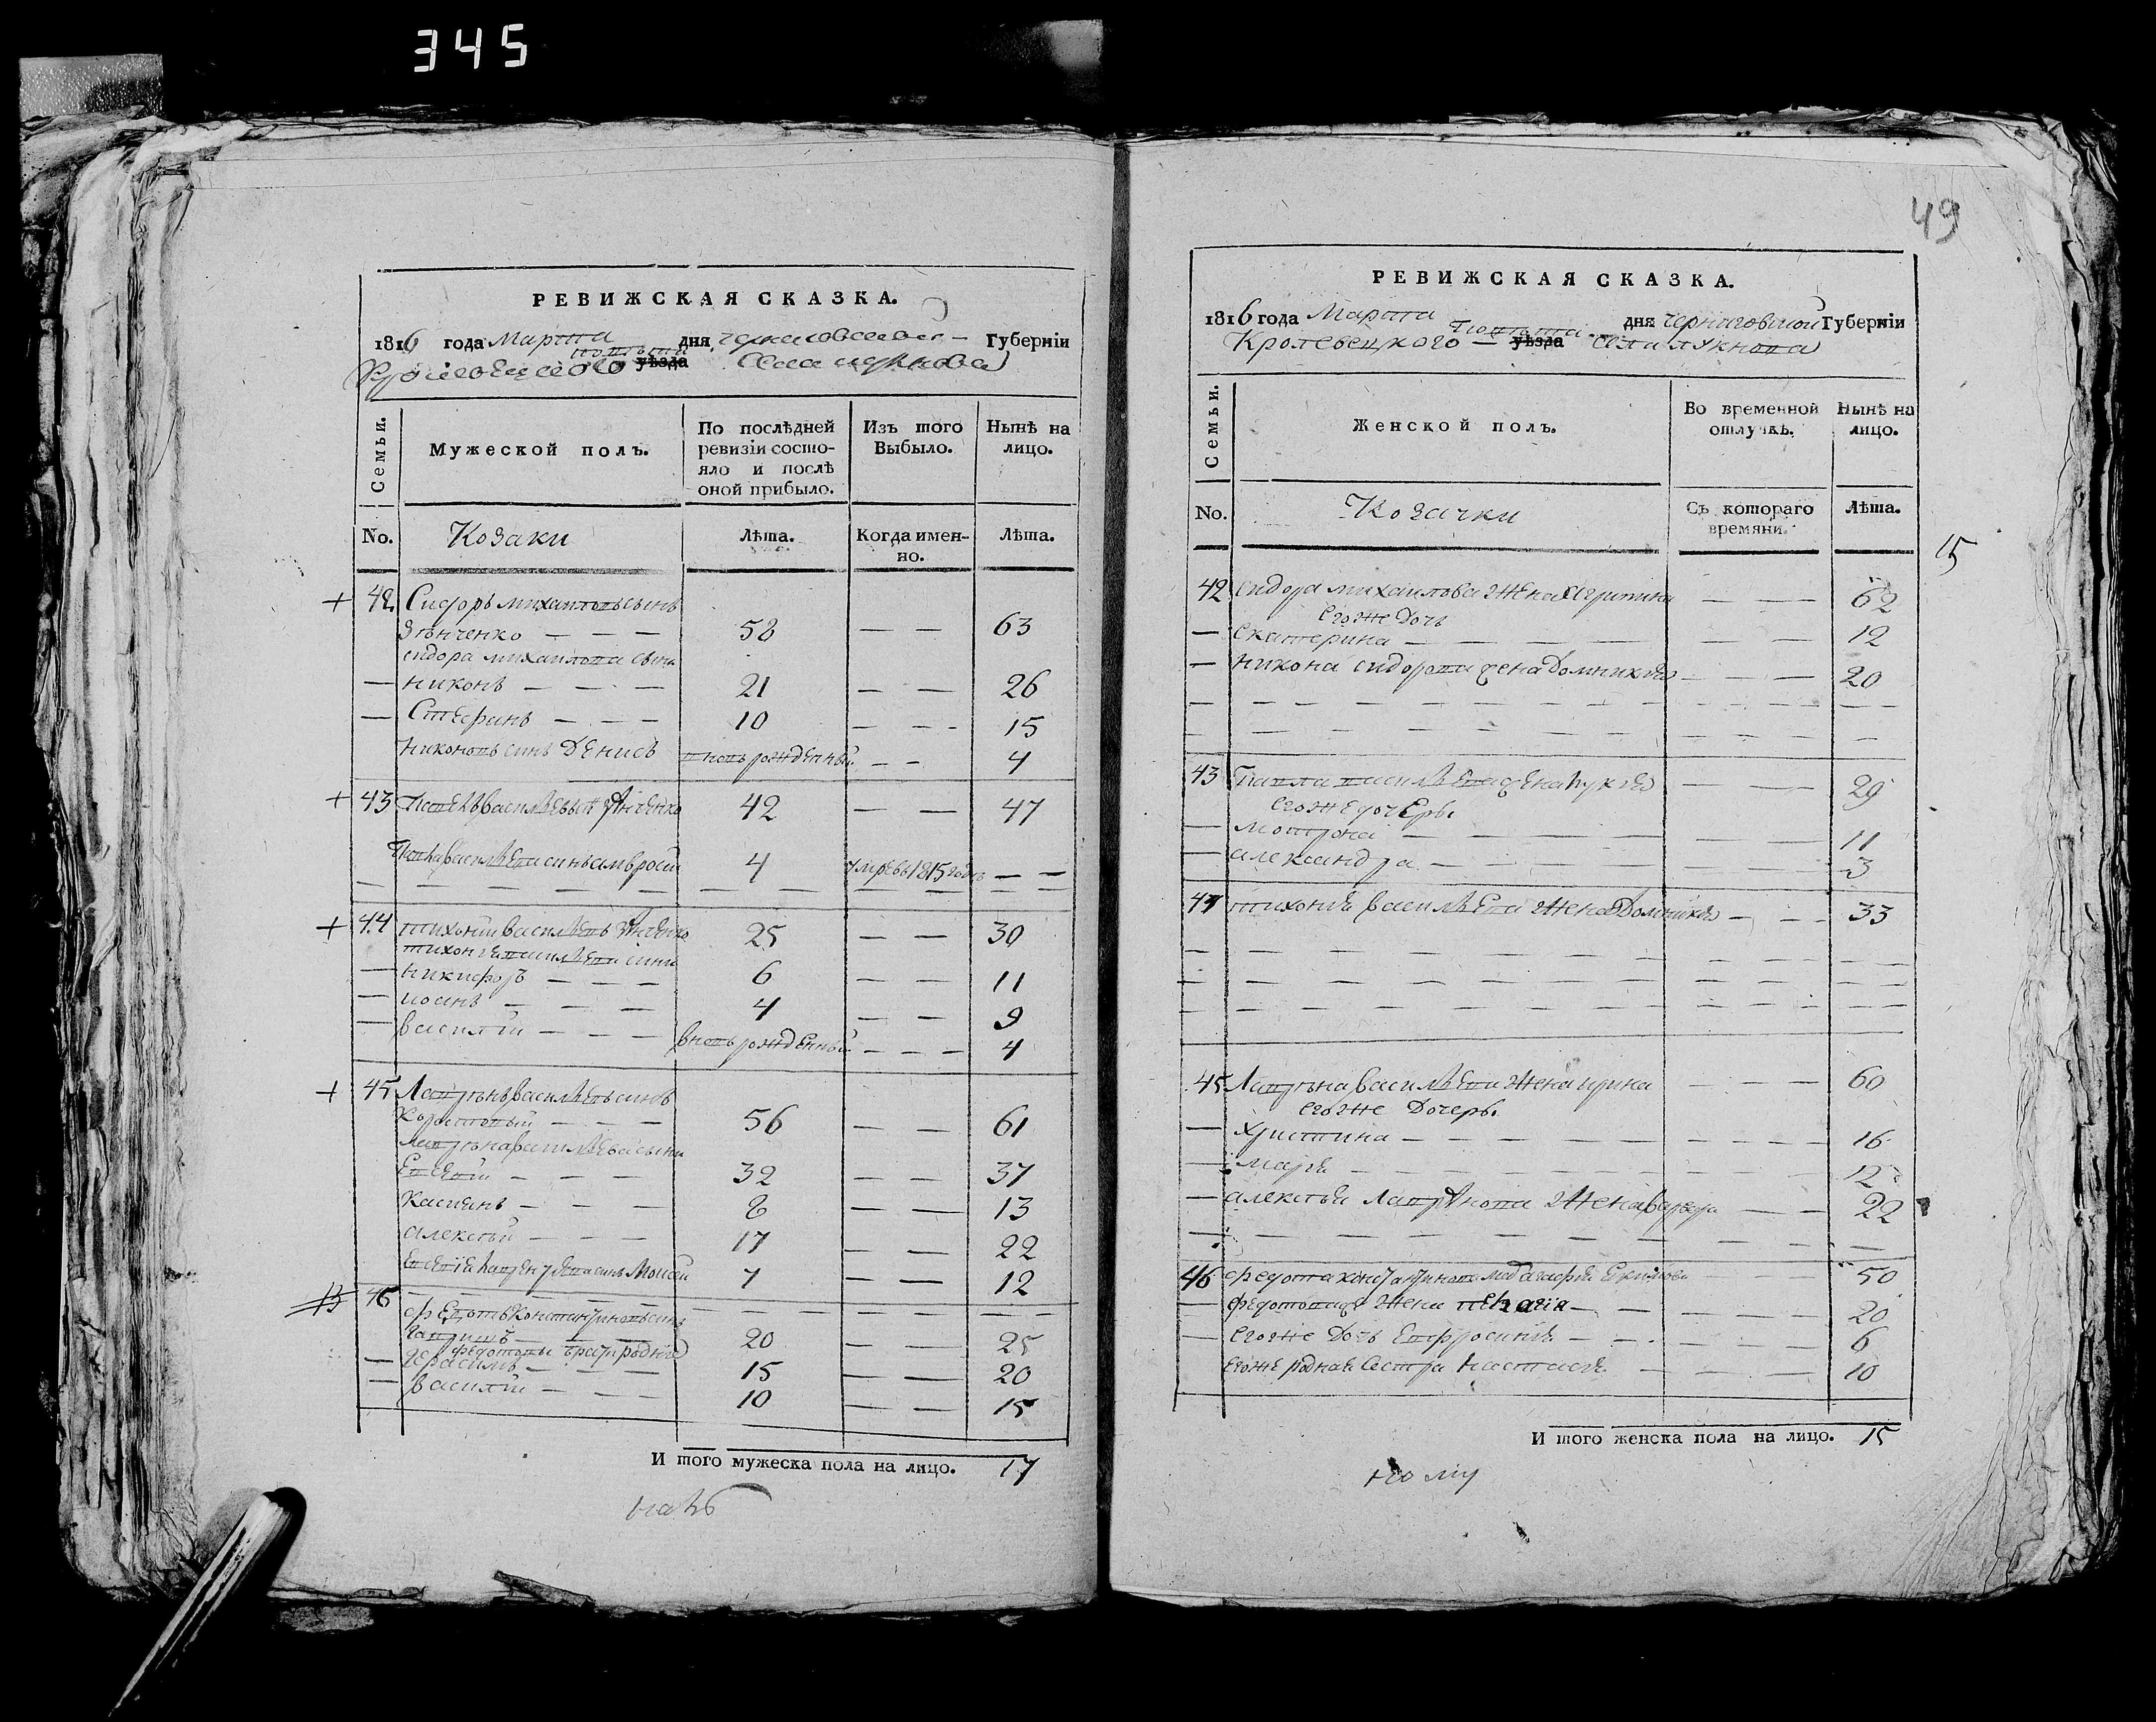 345
РЕВИЖСКАЯ СКАЗКА.
1816 года Марта дня Черниговской Губерніи
Кролевецкого повѣта уѣзда Села Лукнова
Семьи.
Мужеской полъ.
По послѣдней ревизіи состояло и послѣ оной прибыло.
Изъ того Выбыло.
Нынѣ на лицо.
No.
Козаки
Лѣта.
Когда именно.
Лѣта.
+ 42 Сидоръ Михаиловъ сынъ
Зѣнченко — — — 58 — — 63
Сидора Михаилова сыны
— Никонъ — — — 21 — — 26
— Стефанъ — — — 10 — — 15
Никоновъ синъ Денисъ вновь рожденный — — 4
+ 43 Павелъ Василѣевъ Зѣнченко 42 — — 47
Павла Василѣева синъ Амвросій 4 умре въ 1815 годѣ — —
+ 44 Тихоній Василѣевъ Зѣнченко 25 — — 30
Тихонія Василѣева сини
— Никифоръ — — — 6 — — 11
— — — — 4 — — 9
— Василій — — — вновь рожденный — — — 4
+ 45 Лаврѣнъ Василѣевъ синъ
— — — 56 — — 61
Лаврѣна Василѣева сыны
Евсевій — — — 32 — — 37
Касіянъ — — — 8 — — 13
Алексѣй — — — 17 — — 22
синъ Моисей 7 — — 12
46 Федотъ Константиновъ синъ
20 — — 25
Федотовы братя родніе
— Герасимъ — — — 15 — — 20
— Василій — — — 10 — — 15
И того мужеска пола на лицо. 17
49
РЕВИЖСКАЯ СКАЗКА.
1816 года Марта дня Черниговской Губерніи
Кролевецкого — повѣта уѣзда Села Лукнова
Семьи.
Женской полъ.
Во временной отлучкѣ.
Нынѣ на лицо.
No.
Козачки
Съ котораго времяни.
Лѣта.
15
42 Сидора Михаилова жена Агрипина — — — 62
Егоже дочь
— Екатерина — — — — — 12
— Никона Сидорова жена Домникія — — — 20
43 Павла Василѣева жена Лукія — — — 29
Егоже дочеры
— Мотрона — — — — — 11
— Александра — — — — — 3
44 Тихонія Василѣева жена Домникія — — — 33
45 Лаврѣна Василѣева жена Ирина — — — 60
Егоже дочеры
— Христина — — — — — 16
— Марія — — — — — 12
— Алексѣя Лаврѣнова жена Варвара — — 22
46 Федота Константинова Агафія Екимова — — — 50
— Федотова жена Пелагія — — — 20
— Егоже дочь Ефросинія — — — 6
Егоже родная сестра Настасія — — — 10
И того женска пола на лицо. 15